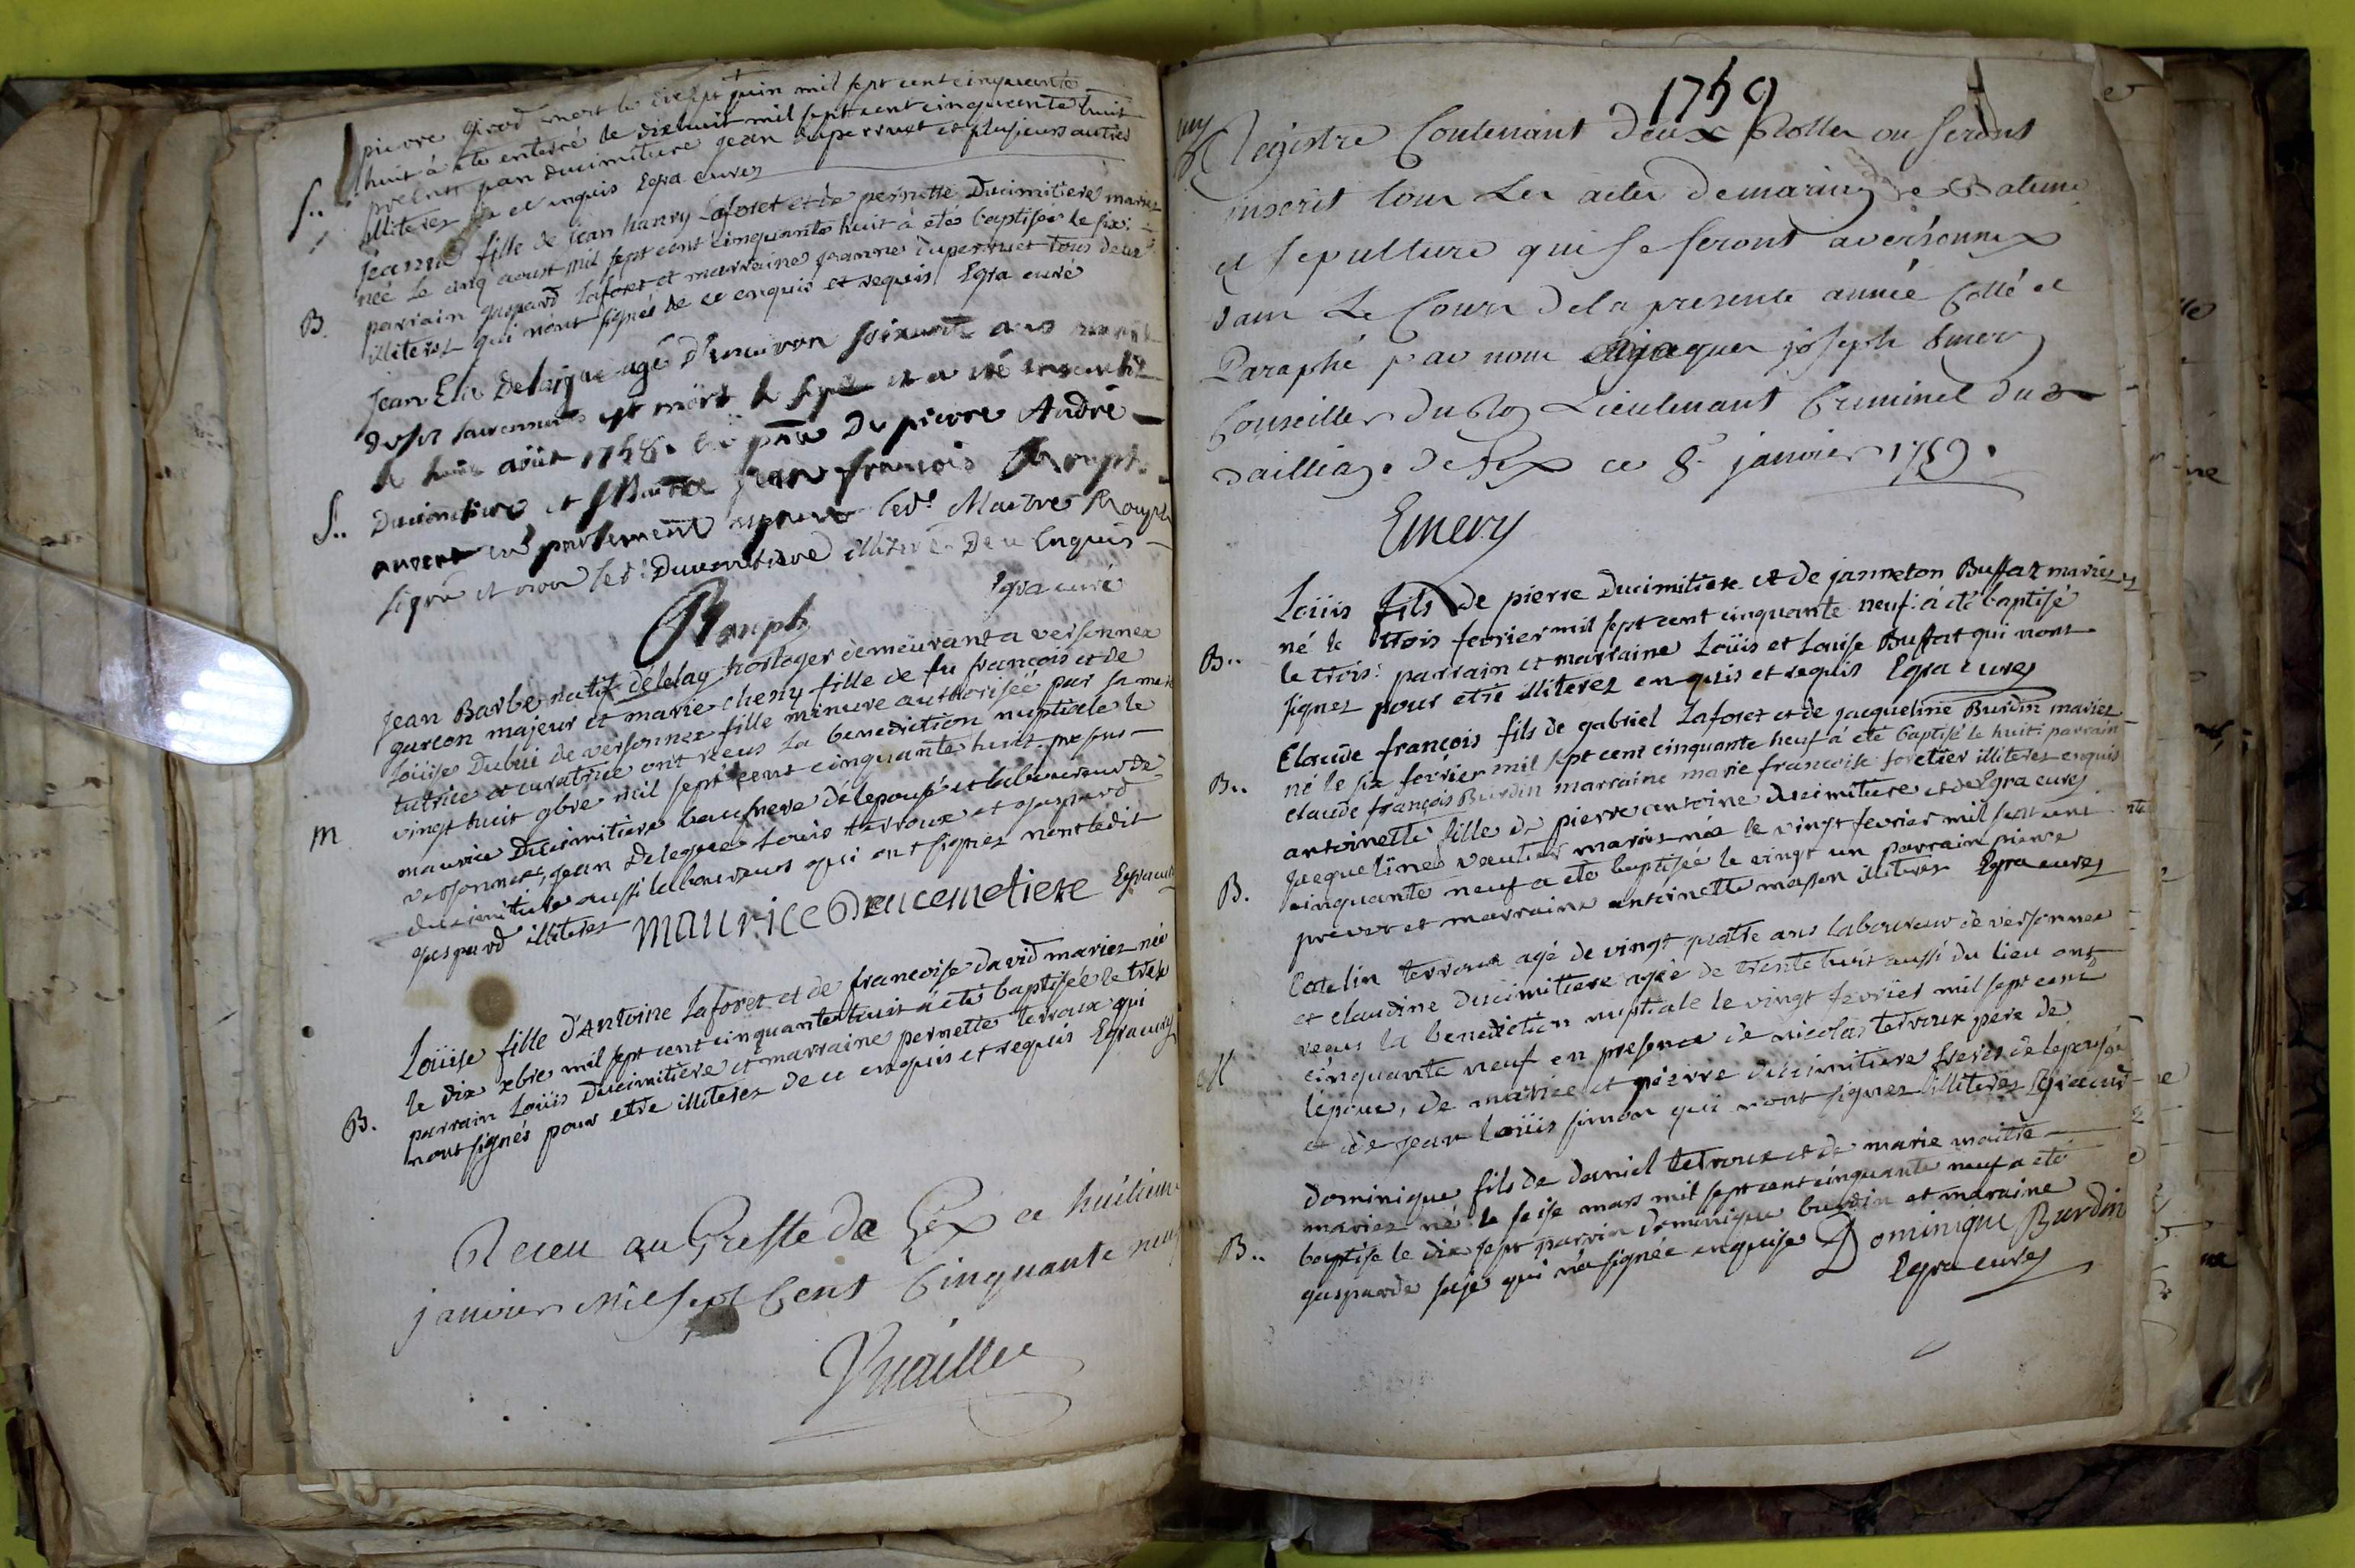 pierre girod mort le disept juin mil sept cent cinquante
huit à ete enterré le dixhuit mil sept cent cinquante huit
presents jean ducimitiere jean duperruet et plusieurs autres
S..
illiteres de ce enquis Egra curez
jeanne fille de jean hanry Laforet et de pernette Ducimitiere mariez
née le cinq aoust mil sept cent cinquante huit à etes baptisee le six:
B.
parrain gaspard Laforet et marraine jeanne duperruet tous deux
illiteres qui n'ont signés de ce enquis et requis Egra curé
jean Elie Delaigue agé d'environ soixante ans
est mort le sept et a eté
le huit août 1758. en pnce De pierre André
S..
Ducimetiere et Maitre jean françois Rouph
avocat en parlement Led.t Maitre Rouph
signé et non led.t Ducimetiere illiteré De ce Enquis
Egra curé
Rouph
jean Barbe natif delelay horloger demeurant a versonnex
garcon majeur et marie cheny fille de fu françois et de
Loüise Dubui de versonnex fille mineure authorisée par sa mere
tutrice et curatrice ont reçus la benediction nuptiale le
vingt huit 9bre mil sept cent cinquante huit presens
m
maurice Ducimitiere beaufrere de lepouse et laboureur de
versonnex, jean Delegue Louis terroux et gaspard
ducimitiere aussi laboureurs qui ont signez non ledit
gaspard illiteres maurice Ducemetiere Egra curé
Loüise fille d'Antoine Laforet et de francoise david mariez née
le dix xbre mil sept cent cinquante huit à eté baptisée le trese
B.
parrain Loüis Ducimitiere et marraine pernette terroux qui
n'ont signés pour etre illiteres de ce enquis et requis Egra curez
Receu au Greffe de Gex ce huitieme
janvier mil sept Cent Cinquante neuf
Vuaillet
1759
Registre Contenant deux Rolles ou seront
inscrit tous Les actes de mariage Bateme
et sepulture qui se feront a versonnex
dans Le Cours de la presente année Cotté et
Paraphé par nous jaques joseph Emery
Conseiller du Roy Lieutenant Criminel du
Bailliage de Gex ce 8.e janvier 1759.
Emery
Loüis fils de pierre Ducimitiere et de janneton Buffat mariez
né le trois fevrier mil sept cent cinquante neuf: à eté baptisé
B..
le trois: parrain et marraine Loüis et Louise Buffat qui n'ont
signez pour etre illiterez enquis et requis Egra curez
Claude françois fils de gabriel Laforet et de jacqueline Burdin mariez
né le six fevrier mil sept cent cinquante neuf a eté baptisé le huit: parrain
B..
claude françois Burdin marraine marie francoise foretier illiteres enquis
antoinette fille de pierre antoine ducimitiere et de Egra curez
jacqueline vautier mariez née le vingt fevrier mil sept cent
B.
cinquante neuf a eté baptisée le vingt un parrain pierre
prevot et marraine antoinette masson illiteres Egra curez
Catelin terroux agé de vingt quatre ans laboureur de versonnex
et claudine ducimitiere agée de trente huit aussi du lieu ont
reçus la benediction nuptiale le vingt fevrier mil sept cent
M
cinquante neuf en presence de nicolas terroux pere de
lepoux, de marice et pierre ducimitiere freres de lepouse
et de jean Loüis simon qui n'ont signez illiteres Egra curé
Dominique fils de daniel terroux et de marie maitre
mariez né le seise mars mil sept cent cinquante neuf a eté
B..
baptisé le dix sept parrin dominique burdin et maraine
gasparde saje qui n'a signée enquise Dominique Burdin
Egra curez